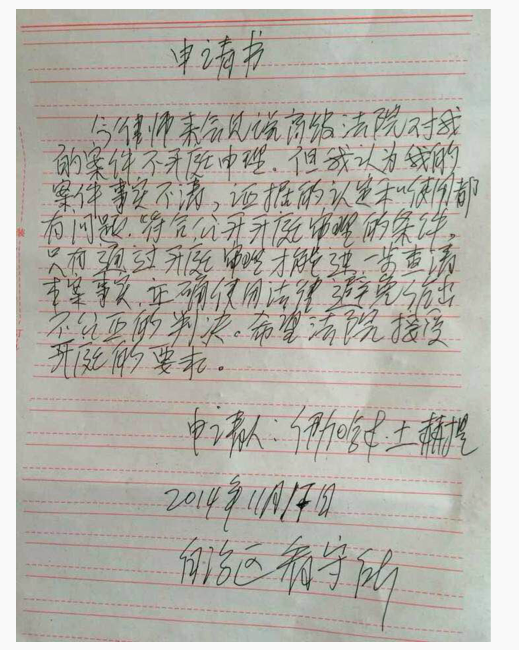 申请书
今律师来会见说高级法院对我
的案件不开庭审理。但我认为我的
案件事实不清，证据的认定和使用都
有问题。符合公开开庭审理的条件，
只有通过开庭审理才能进一步查清
本案事实 正确使用法律 避免作出
不公正的判决。希望法院接受
开庭的要求。
申请人：伊力哈木·土赫提
2014年11月17日
自治区看守所